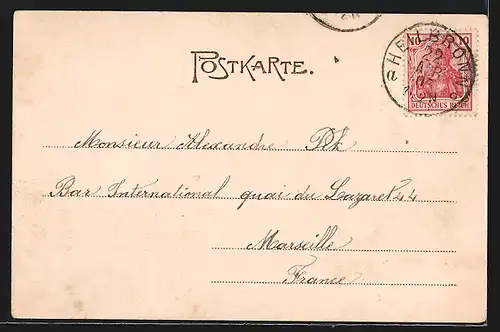 POSTKARTE.
HEILBRONN
22
APR
DEUTSCHES REICH
Monsieur Alexandre
Bar International quai du Lazaret 44
Marseille
France